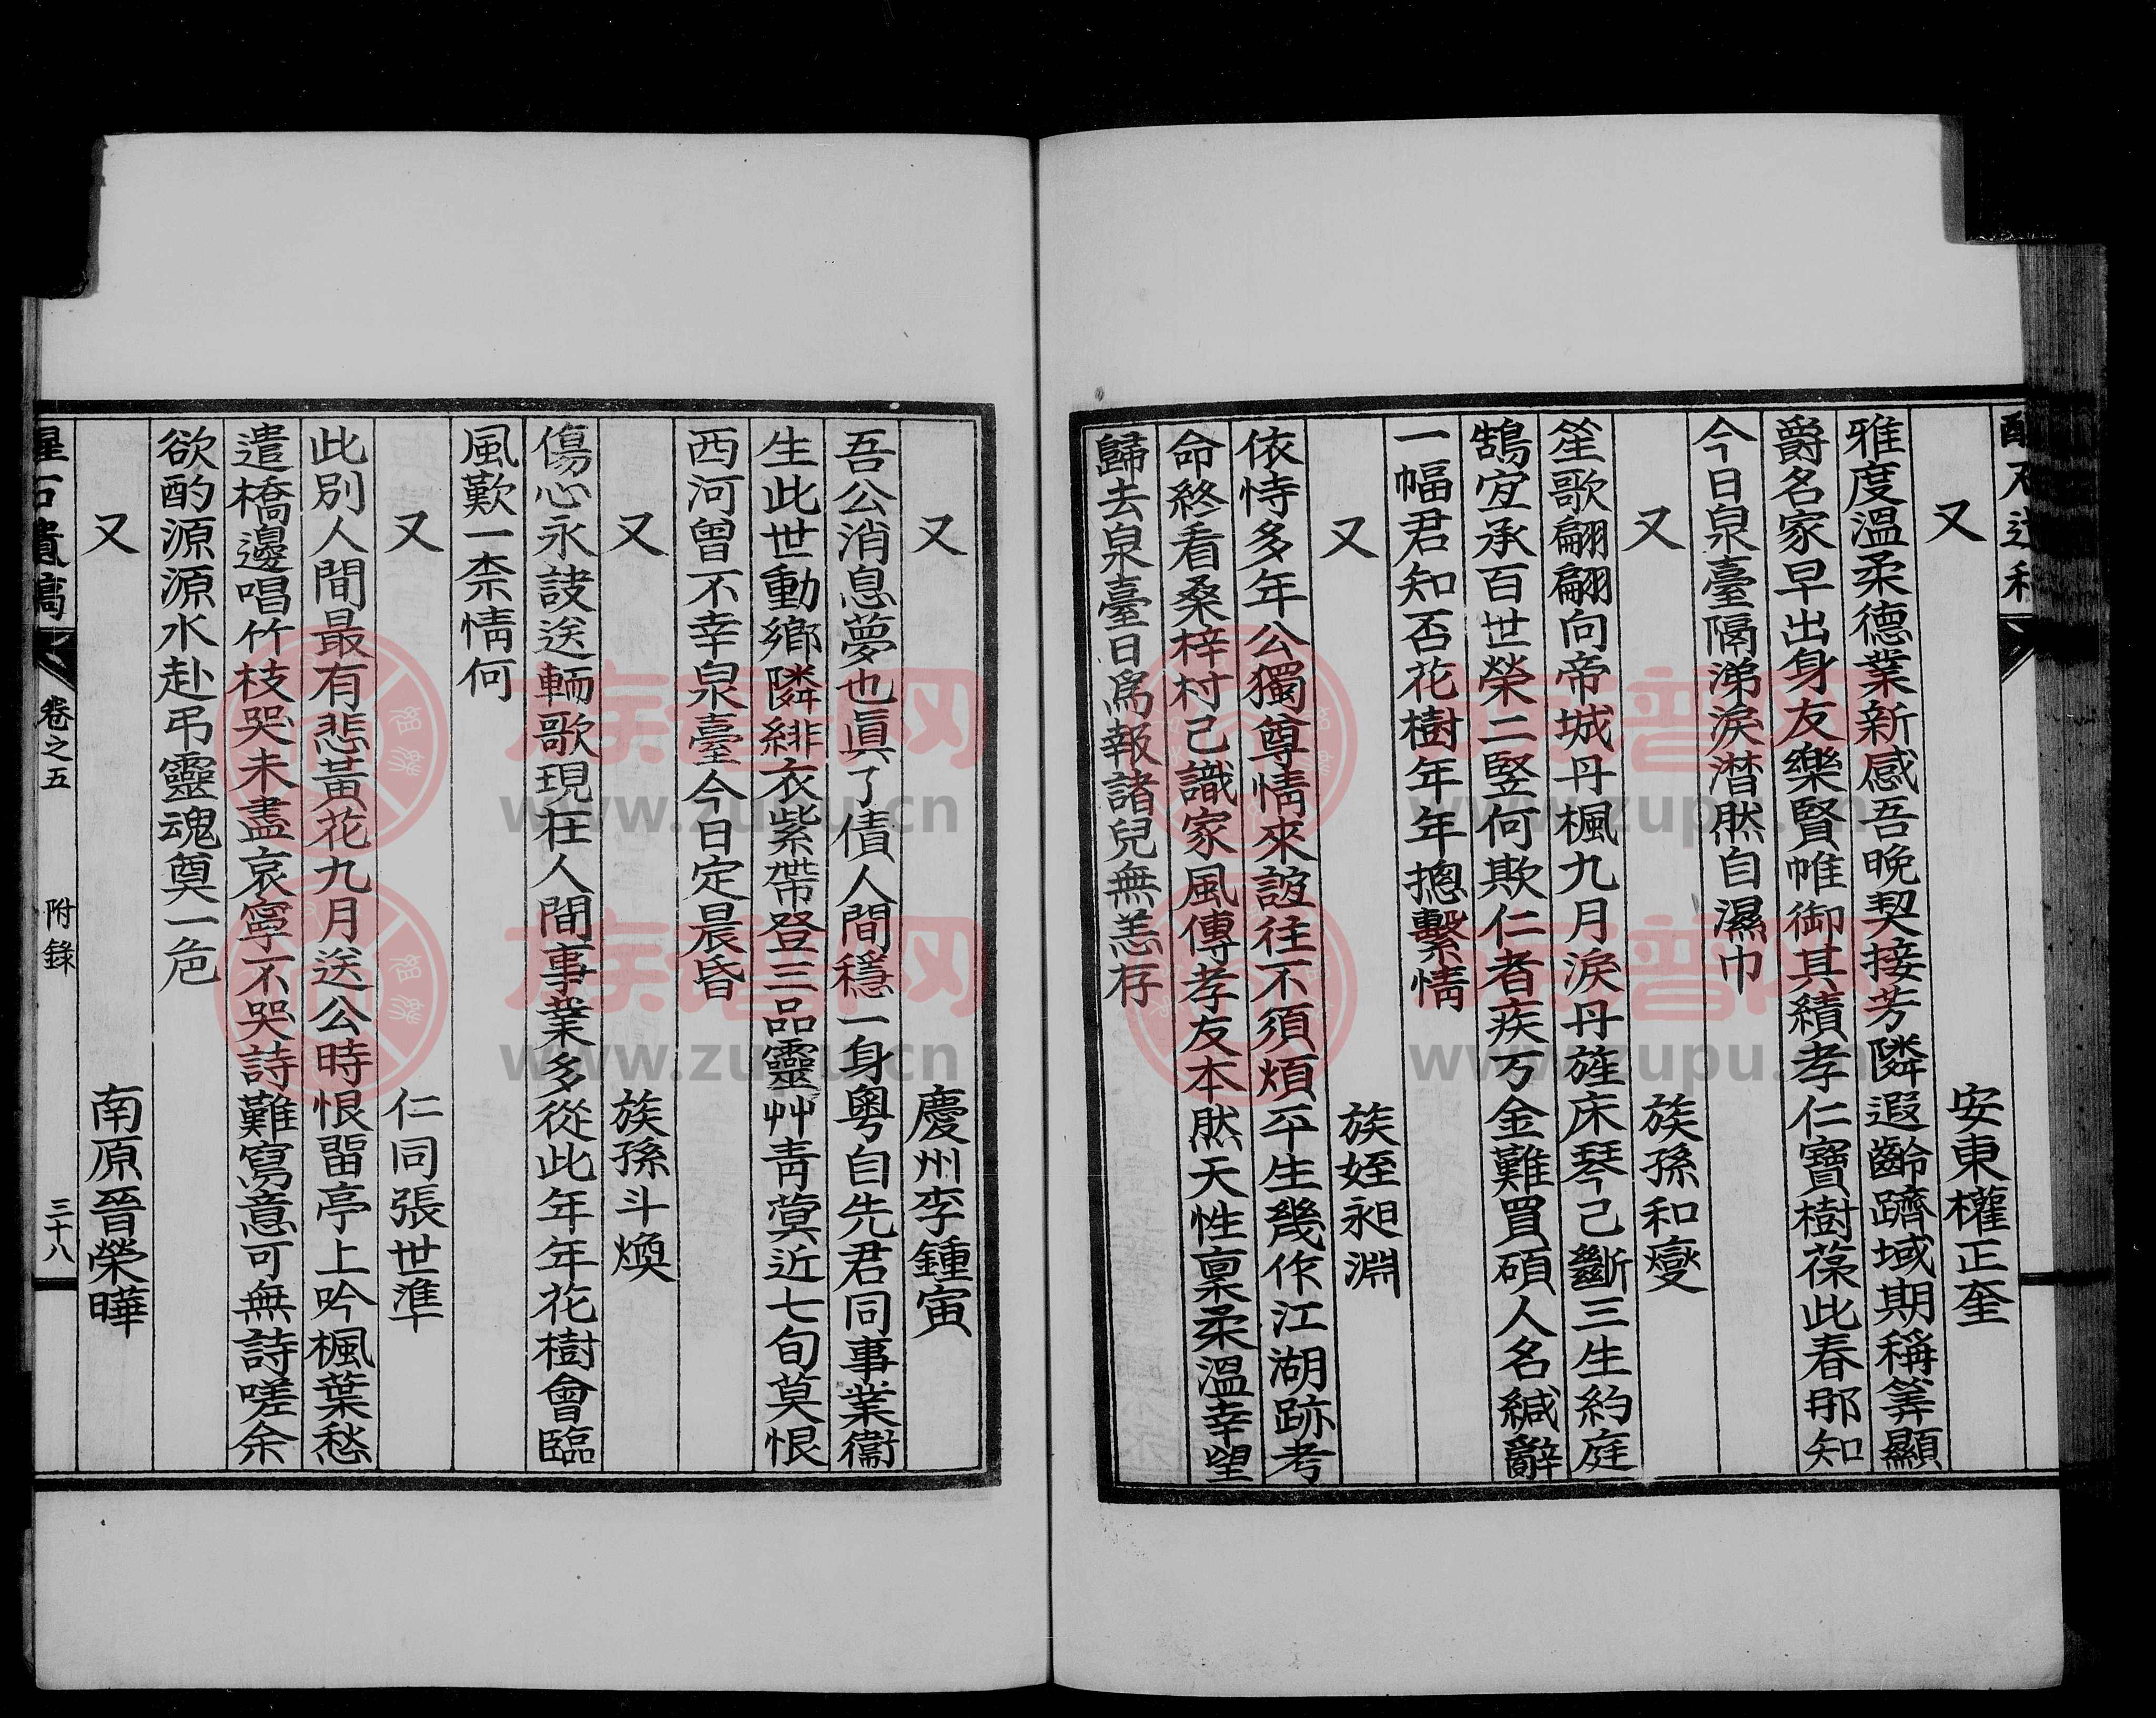 又 安東權正奎
雅度溫柔德業新感吾晚契接芳隣遐齡躋域期稱筭顯
爵名家早出身友樂賢帷御其績孝仁寶樹葆此春那知
今日泉臺隔涕淚潸然自濕巾
又 族孫和燮
笙歌翩翩向帝城丹楓九月淚丹旌床琴己斷三生約庭
鵠宜承百世榮二竪何欺仁者疾万金難買碩人名緘辭
一幅君知否花樹年年摠繫情
又 族姪昶淵
依恃多年公獨尊情來誼往不須煩平生幾作江湖跡考
命終看桑梓村己識家風傳孝友本然天性稟柔溫幸望
歸去泉臺日爲報諸兒無恙存
又 慶州李鍾寅
吾公消息夢也眞了債人間穩一身粤自先君同事業衞
生此世動鄉隣緋衣紫帶登三品靈艸靑蓂近七旬莫恨
西河曾不幸泉臺今日定晨昏
又 族孫斗煥
傷心永訣送輀歌現在人間事業多從此年年花樹會臨
風歎一柰情何
又 仁同張世準
此別人間最有悲黃花九月送公時恨畱亭上吟楓葉愁
遣橋邊唱竹枝哭未盡哀寧不哭詩難寫意可無詩嗟余
欲酌源源水赴弔靈魂奠一卮
又 南原晉榮暐
星石遺稿 卷之五 附錄 三十八
族譜网
www.zupu.cn
族譜网
www.zupu.cn
族譜网
www.zupu.cn
族譜网
www.zupu.cn